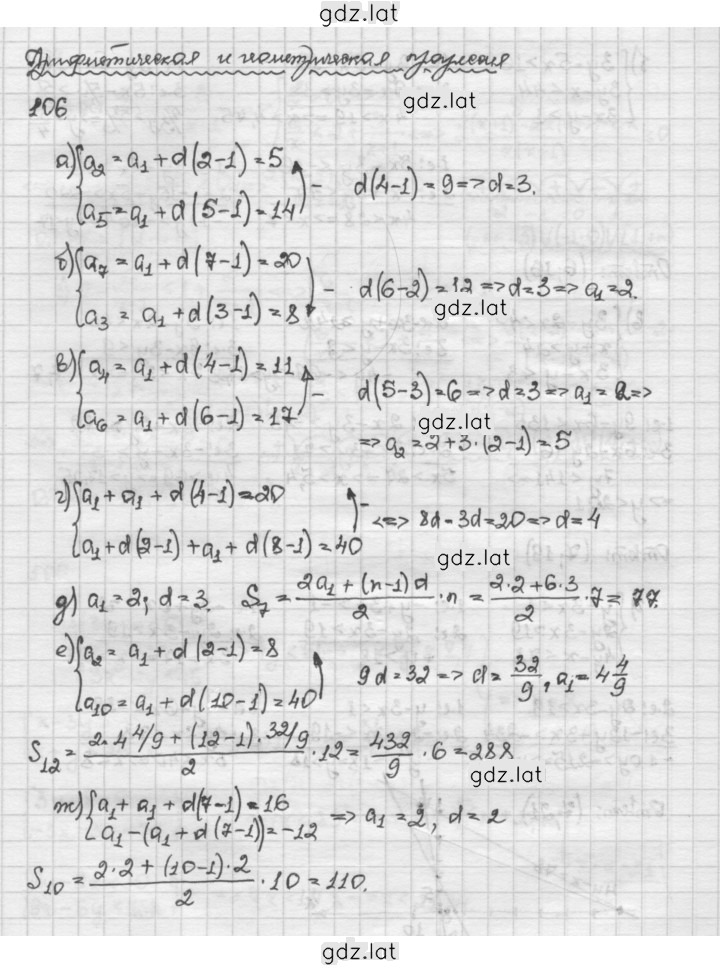 gdz.lat
Арифметическая и геометрическая прогрессия
gdz.lat
106
а) { a₂ = a₁ + d(2-1) = 5
a₅ = a₁ + d(5-1) = 14 − d(4-1) = 9 => d=3.
б) { a₇ = a₁ + d(7-1) = 20
a₃ = a₁ + d(3-1) = 8 − d(6-2) = 12 => d=3 => a₁=2.
gdz.lat
в) { a₄ = a₁ + d(4-1) = 11
a₆ = a₁ + d(6-1) = 17 − d(5-3) = 6 => d=3 => a₁ = 2 =>
gdz.lat
=> a₂ = 2 + 3·(2-1) = 5
г) { a₁ + a₁ + d(4-1) = 20
a₁ + d(2-1) + a₁ + d(8-1) = 40 − <=> 8d - 3d = 20 => d = 4
gdz.lat
д) a₁ = 2; d = 3. S₇ = (2a₁ + (n-1)d)/2 · n = (2·2 + 6·3)/2 · 7 = 77.
е) { a₂ = a₁ + d(2-1) = 8
a₁₀ = a₁ + d(10-1) = 40 9d = 32 => d = 32/9, a₁ = 4 4/9
S₁₂ = (2·4 4/9 + (12-1)·32/9)/2 · 12 = 432/9 · 6 = 288
gdz.lat
ж) { a₁ + a₁ + d(7-1) = 16
a₁ - (a₁ + d(7-1)) = -12 => a₁ = 2, d = 2
S₁₀ = (2·2 + (10-1)·2)/2 · 10 = 110.
gdz.lat